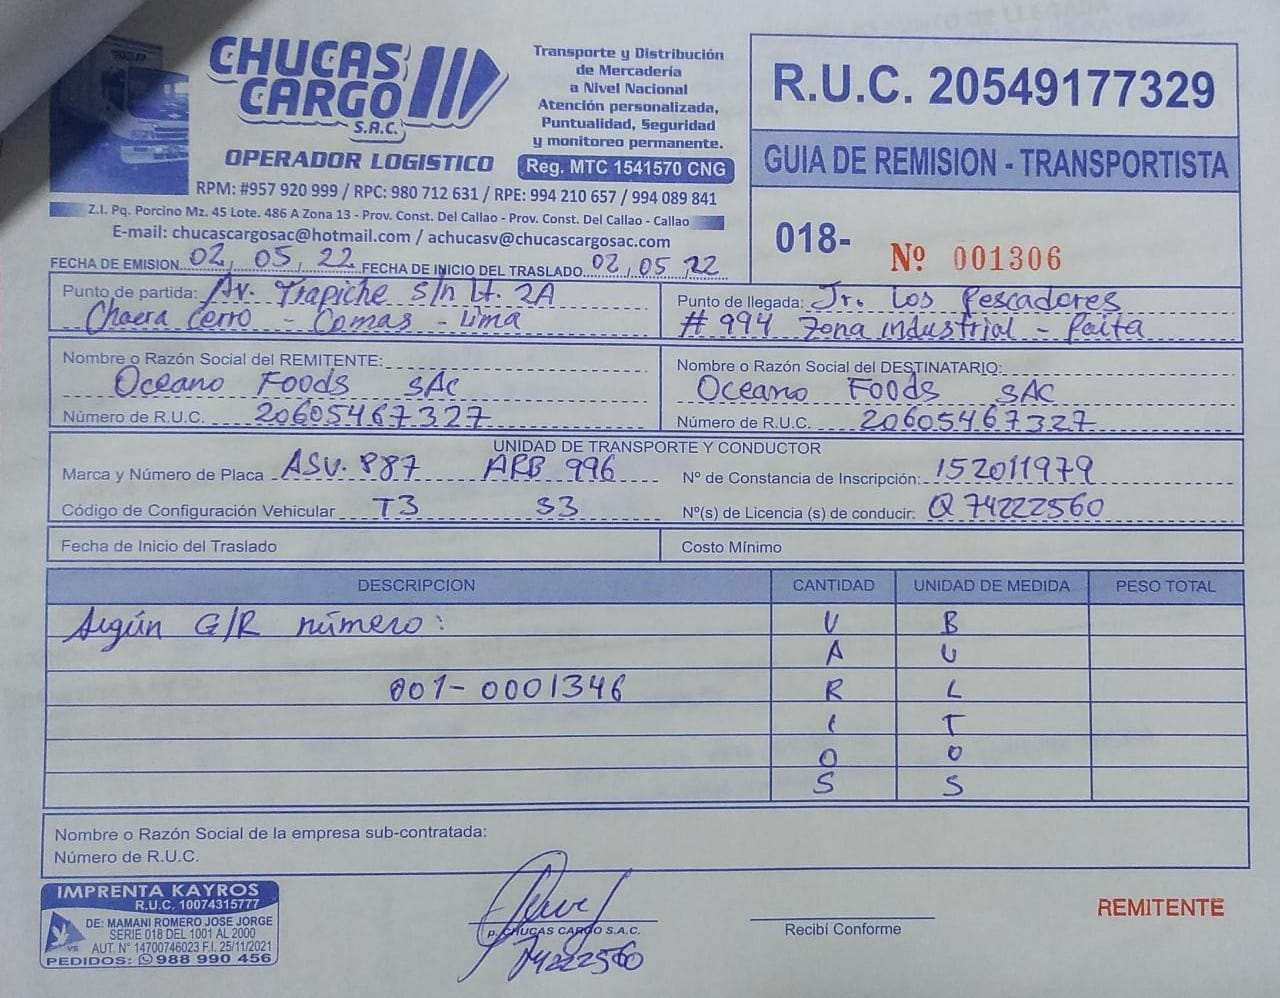 CHUCAS
CARGO
S.A.C.
OPERADOR LOGISTICO
Transporte y Distribución
de Mercadería
a Nivel Nacional
Atención personalizada,
Puntualidad, Seguridad
y monitoreo permanente.
Reg. MTC 1541570 CNG
RPM: #957 920 999 / RPC: 980 712 631 / RPE: 994 210 657 / 994 089 841
Z.I. Pq. Porcino Mz. 45 Lote. 486 A Zona 13 - Prov. Const. Del Callao - Prov. Const. Del Callao - Callao
E-mail: chucascargosac@hotmail.com / achucasv@chucascargosac.com
R.U.C. 20549177329
GUIA DE REMISION - TRANSPORTISTA
018- Nº 001306
FECHA DE EMISION 02, 05, 22 FECHA DE INICIO DEL TRASLADO 02, 05, 22
Punto de partida: Av. Trapiche S/n Lt. 2A
Chacra Cerro - Comas - Lima
Punto de llegada: Jr. Los Pescadores
# 994 Zona industrial - Paita
Nombre o Razón Social del REMITENTE:
Oceano Foods SAC
Número de R.U.C. 20605467327
Nombre o Razón Social del DESTINATARIO:
Oceano Foods SAC
Número de R.U.C. 20605467327
UNIDAD DE TRANSPORTE Y CONDUCTOR
Marca y Número de Placa ASV. 887 ARB 996
Nº de Constancia de Inscripción: 152011979
Código de Configuración Vehicular T3 S3
Nº(s) de Licencia (s) de conducir: Q 74222560
Fecha de Inicio del Traslado Costo Mínimo
DESCRIPCION CANTIDAD UNIDAD DE MEDIDA PESO TOTAL
Según G/R número: V B
A U
001- 0001346 R L
I T
O O
S S
Nombre o Razón Social de la empresa sub-contratada:
Número de R.U.C.
IMPRENTA KAYROS
R.U.C. 10074315777
DE: MAMANI ROMERO JOSE JORGE
SERIE 018 DEL 1001 AL 2000
AUT. N° 14700746023 F.I. 25/11/2021
PEDIDOS: 988 990 456
P. CHUCAS CARGO S.A.C.
74222560
Recibí Conforme
REMITENTE